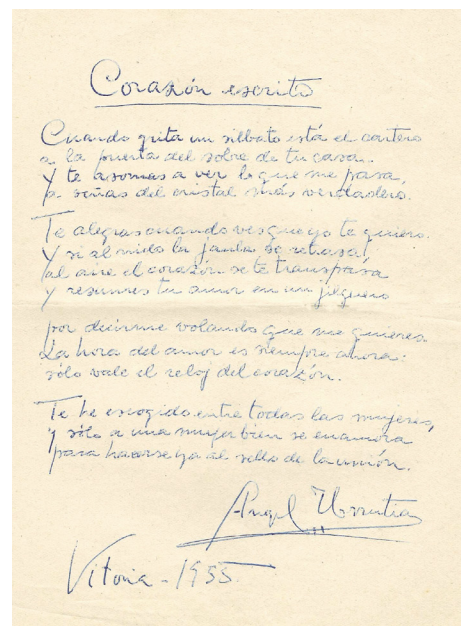 Corazón escrito
Cuando grita un silbato está el cartero
a la puerta del sobre de tu casa.
Y te asomas a ver lo que me pasa,
a señas del cristal más verdadero.
Te alegras cuando ves que yo te quiero.
Y si al nido la jaula se rebasa,
al aire el corazón se te transpasa
y resumes tu amor en un jilguero
por decirme volando que me quieres.
La hora del amor es siempre ahora:
sólo vale el reloj del corazón.
Te he escogido entre todas las mujeres,
y sólo a una mujer bien se enamora
para hacerse ya al sello de la unión.
Ángel Urrutia
Vitoria - 1955